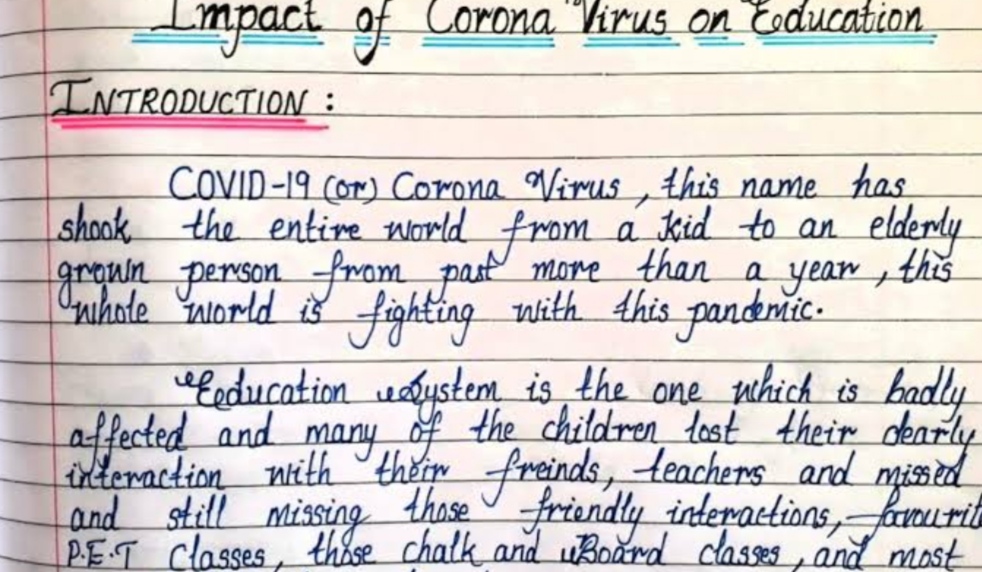 Impact of Corona Virus on Education
INTRODUCTION :
COVID-19 (or) Corona Virus , this name has
shook the entire world from a kid to an elderly
grown person from past more than a year , this
whole world is fighting with this pandemic.
Education System is the one which is badly
affected and many of the children lost their dearly
interaction with their freinds, teachers and missed
and still missing those friendly interactions, favourit
P.E.T Classes, those chalk and Board classes , and most